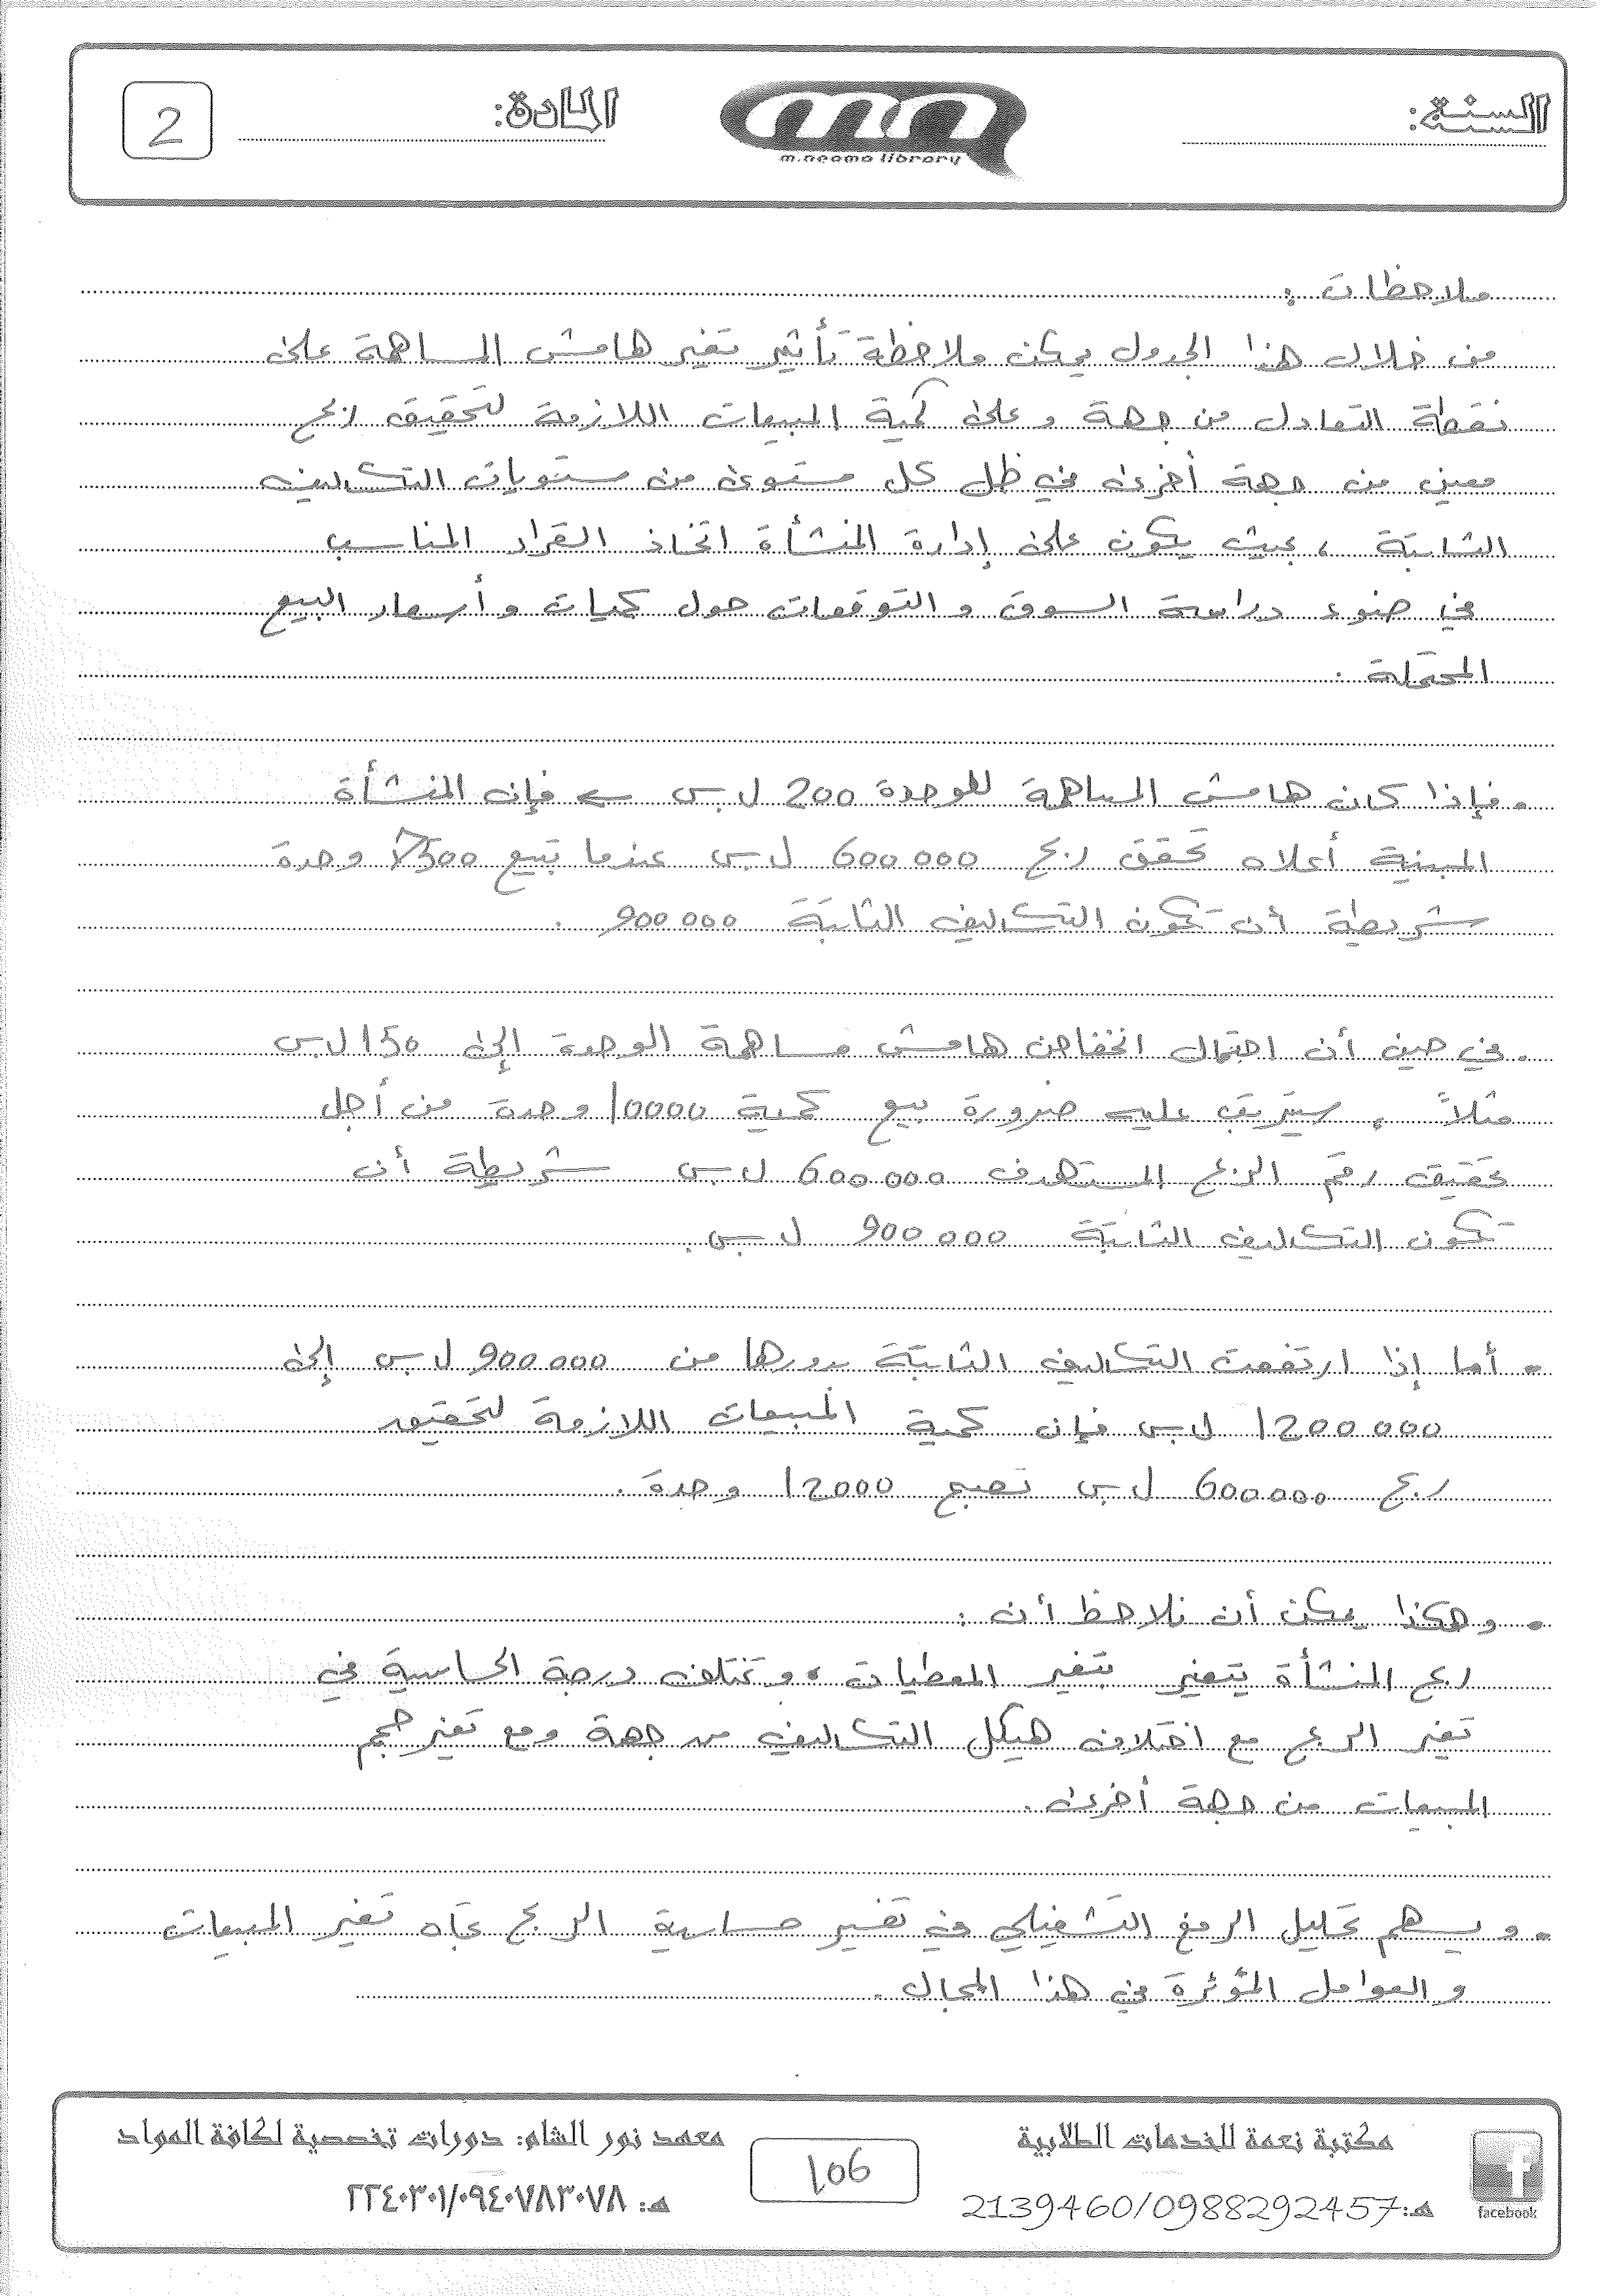 السنة:
m.neama library
المادة:
2
ملاحظات :
من خلال هذا الجدول يمكن ملاحظة تأثير تغير هامش المساهمة على
نقطة التعادل من جهة وعلى كمية المبيعات اللازمة لتحقيق ربح
معين من جهة أخرى في ظل كل مستوى من مستويات التكاليف
الثابتة ، بحيث يكون على إدارة المنشأة اتخاذ القرار المناسب
في ضوء دراسة السوق و التوقعات حول كميات و أسعار البيع
المحتملة .
. فإذا كان هامش المساهمة للوحدة 200 ل.س ← فإن المنشأة
المبينة أعلاه تحقق ربح 600 000 ل.س عندما تبيع 7500 وحدة
شريطة أن تكون التكاليف الثابتة 900 000 .
. في حين أن احتمال انخفاض هامش مساهمة الوحدة إلى 150 ل.س
مثلاً ، سيترتب عليه ضرورة بيع كمية 10000 وحدة من أجل
تحقيق رقم الربح المستهدف 600 000 ل.س شريطة أن
تكون التكاليف الثابتة 900 000 ل.س.
. أما إذا ارتفعت التكاليف الثابتة بدورها من 900 000 ل.س إلى
1 200 000 ل.س فإن كمية المبيعات اللازمة لتحقيق
ربح 600 000 ل.س تصبح 12000 وحدة .
. وهكذا يمكن أن نلاحظ أن :
ربح المنشأة يتغير بتغير المعطيات ، و تختلف درجة الحساسية في
تغير الربح مع اختلاف هيكل التكاليف من جهة ومع تغير حجم
المبيعات من جهة أخرى .
. و يسهم تحليل الرفع التشغيلي في تفسير حساسية الربح تجاه تغير المبيعات
و العوامل المؤثرة في هذا المجال .
مكتبة نعمة للخدمات الطلابية
هـ: 2139460/0988292457
facebook
106
معهد نور الشام: دورات تخصصية لكافة المواد
هـ: ٢٢٤٠٣٠١/٠٩٤٠٧٨٣٠٧٨